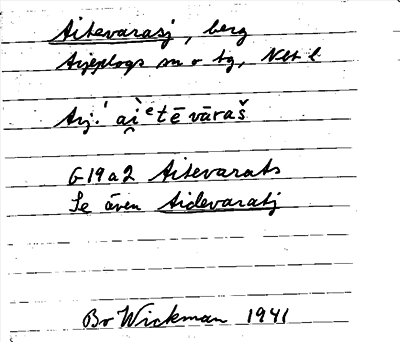 Aitevarasj, berg
Arjeplogs sn o tg, Nbt l
Arj. ai̯ᵉtēvāraš
G19a2 Aitevarats
Se även Aidevaratj
Bo Wickman 1941